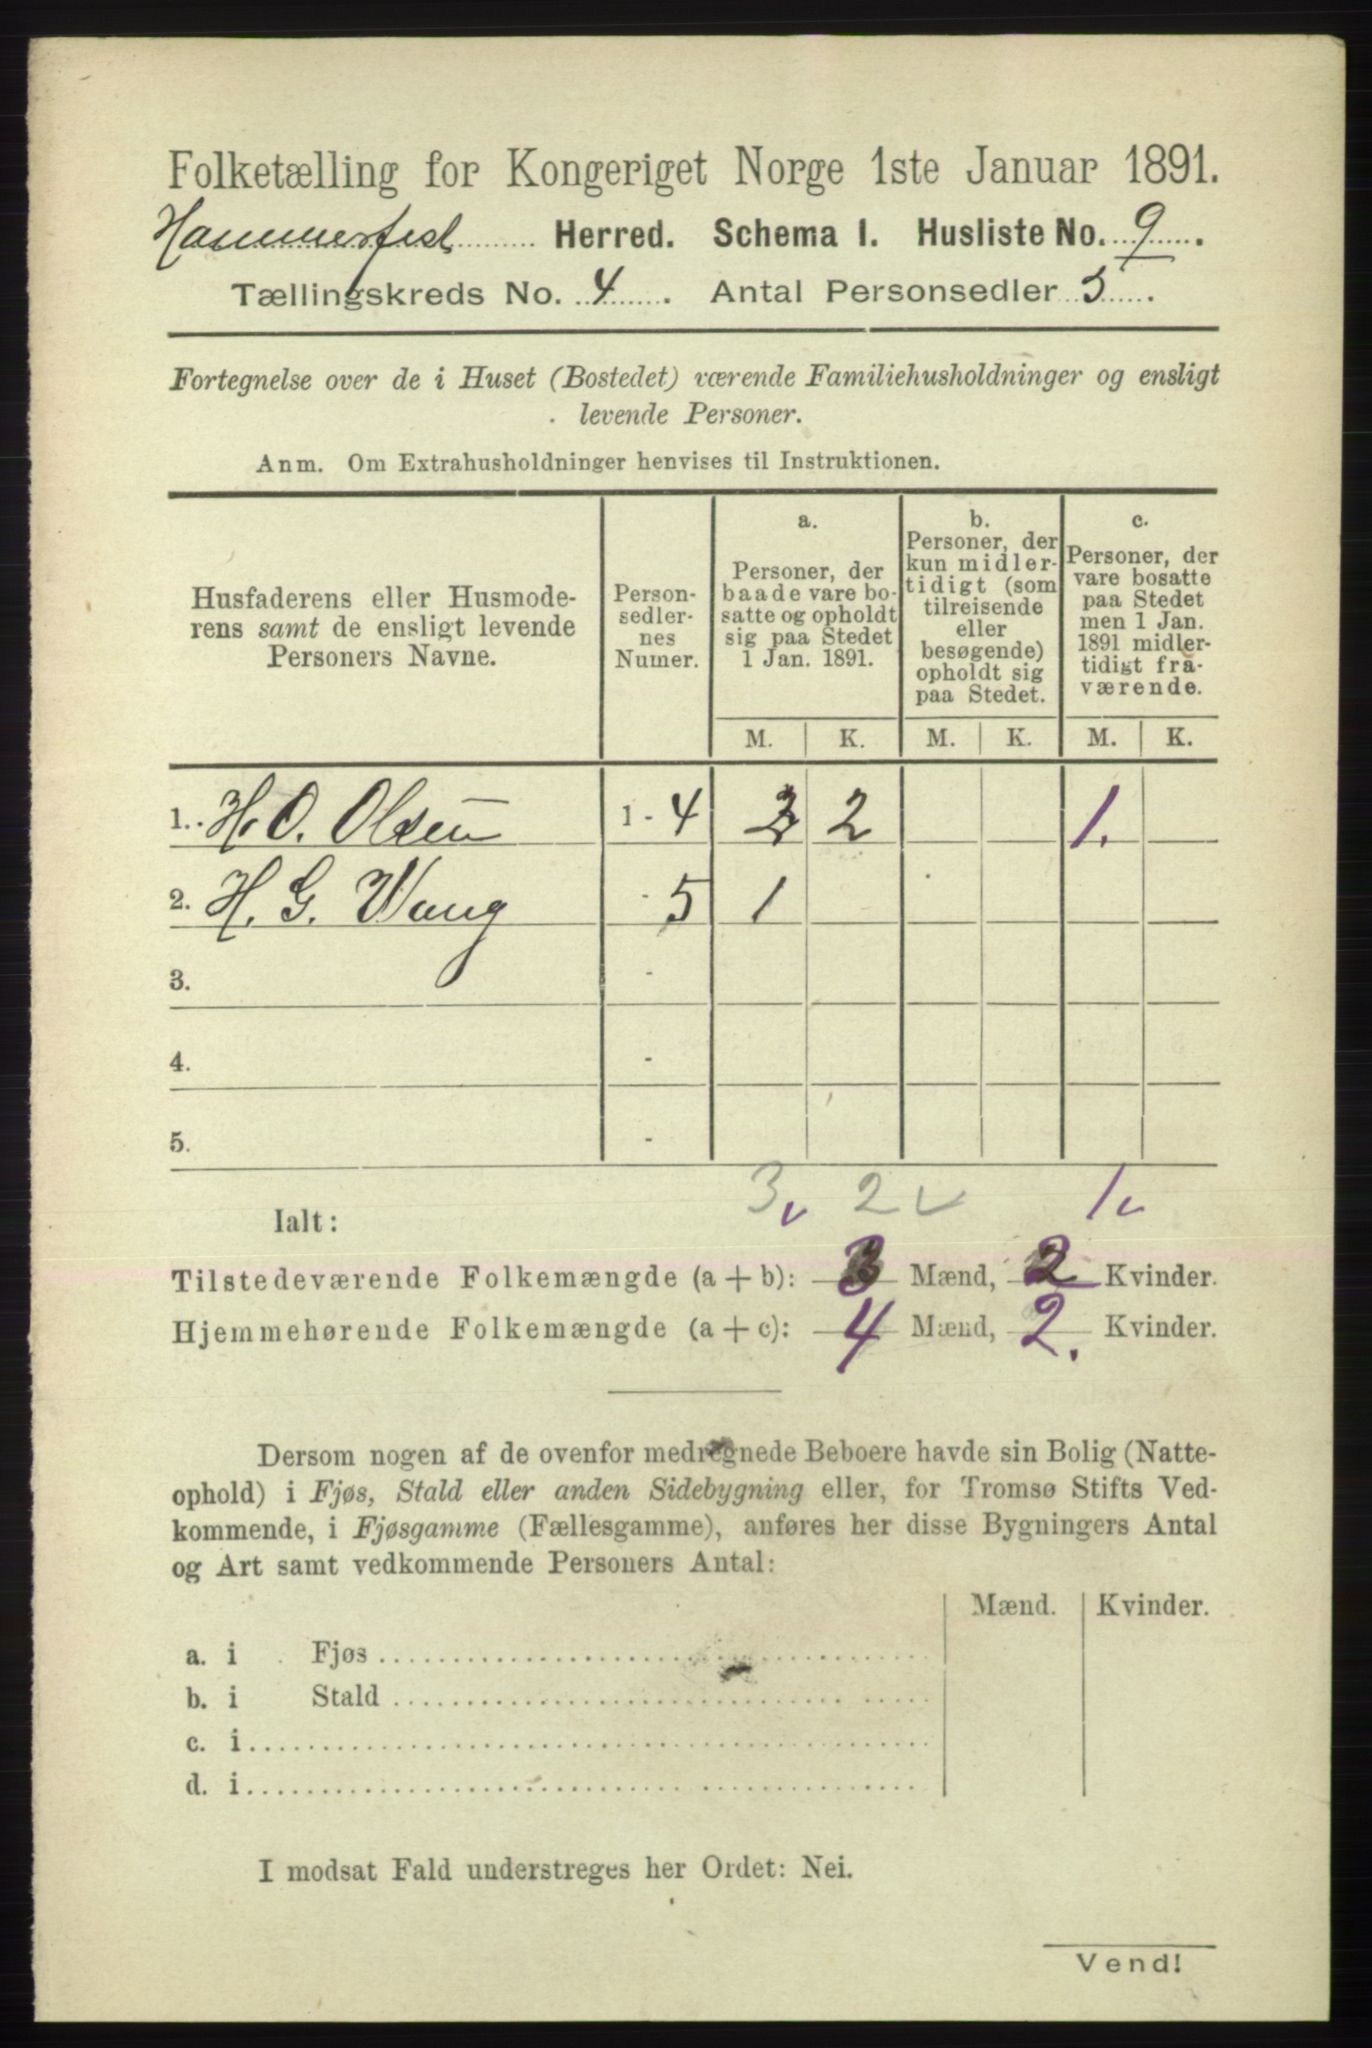 Folketælling for Kongeriget Norge 1ste Januar 1891.
Hammerfest Herred. Schema I. Husliste No. 9.
Tællingskreds No. 4. Antal Personsedler 5.
Fortegnelse over de i Huset (Bostedet) værende Familiehusholdninger og ensligt
levende Personer.
Anm. Om Extrahusholdninger henvises til Instruktionen.
Husfaderens eller Husmode-
rens samt de ensligt levende
Personers Navne.
Person-
sedler-
nes
Numer.
a.
Personer, der
baade vare bo-
satte og opholdt
sig paa Stedet
1 Jan. 1891.
b.
Personer, der
kun midler-
tidigt (som
tilreisende
eller
besøgende)
opholdt sig
paa Stedet.
c.
Personer, der
vare bosatte
paa Stedet
men 1 Jan.
1891 midler-
tidigt fra-
værende.
M. K. M. K. M. K.
1. H. O. Olsen 1 - 4 2 1.
2. H. G. Wang - 5 1
3. -
4. -
5. -
3 2 1
Ialt:
Tilstedeværende Folkemængde (a + b): 3 Mænd, 2 Kvinder.
Hjemmehørende Folkemængde (a + c): 4 Mænd, 2. Kvinder.
Dersom nogen af de ovenfor medregnede Beboere havde sin Bolig (Natte-
ophold) i Fjøs, Stald eller anden Sidebygning eller, for Tromsø Stifts Ved-
kommende, i Fjøsgamme (Fællesgamme), anføres her disse Bygningers Antal
og Art samt vedkommende Personers Antal:
Mænd. Kvinder.
a. i Fjøs
b. i Stald
c. i
d. i
I modsat Fald understreges her Ordet: Nei.
Vend!